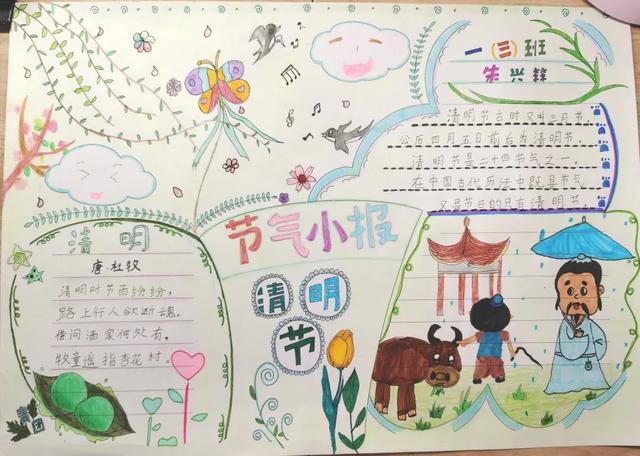 一(三)班
朱兴
清明节古时又叫三月节,
公历四月五日前后为清明节.
清明节是二十四节气之一,
在中国古代历法中既是节气
又是节日的只有清明节.
节气小报
清明
节
清明
唐·杜牧
清明时节雨纷纷,
路上行人欲断魂.
借问酒家何处有,
牧童遥指杏花村.
青团